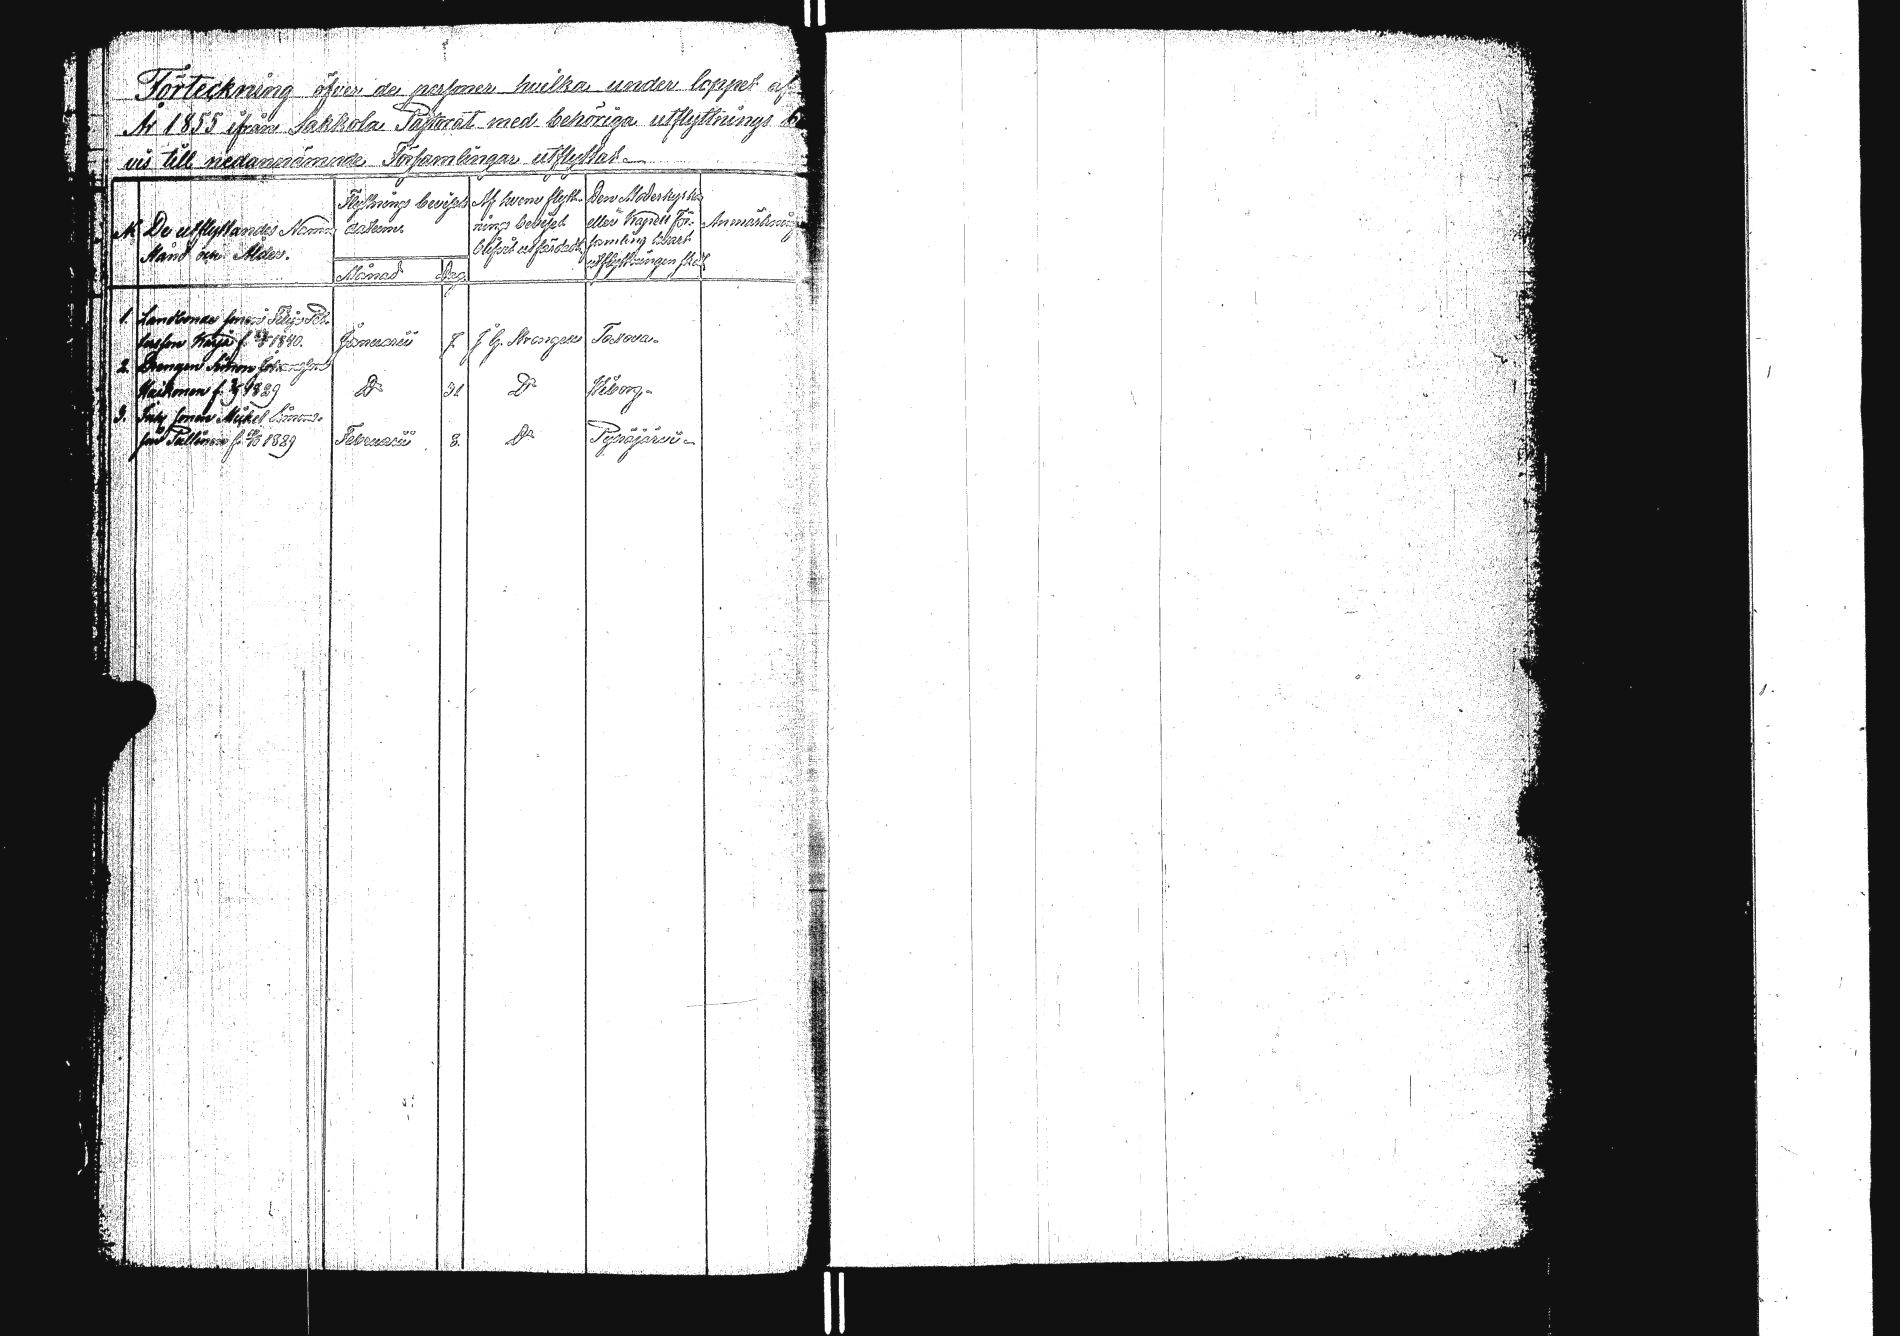 Förteckning öfver de personer hvilka under loppet af
År 1855 ifrån Sakkola Pastorat med behöriga utflyttnings be
vis till nedannämnde Församlingar utflyttat.
N. De utflyttandes Namn
Stånd och Ålder.
Flyttnings bevisets
datum.
Månad Dag
Af hvem flytt-
nings beviset
blifvit utfärdadt
Den Moderkyrka
eller Kapell För-
samling hvart
utflyttningen skett
Anmärkning
1. Landbonde sonen
f. 1830. Januarii 7 J. G. Strangeus
2. Drengen Simon Johansson
f. 1829 Do 31 Do Wiborg
3. sonen Mickel Simons-
son Pullinen f. 1829 Februarii 8. Do Pyhäjärvi